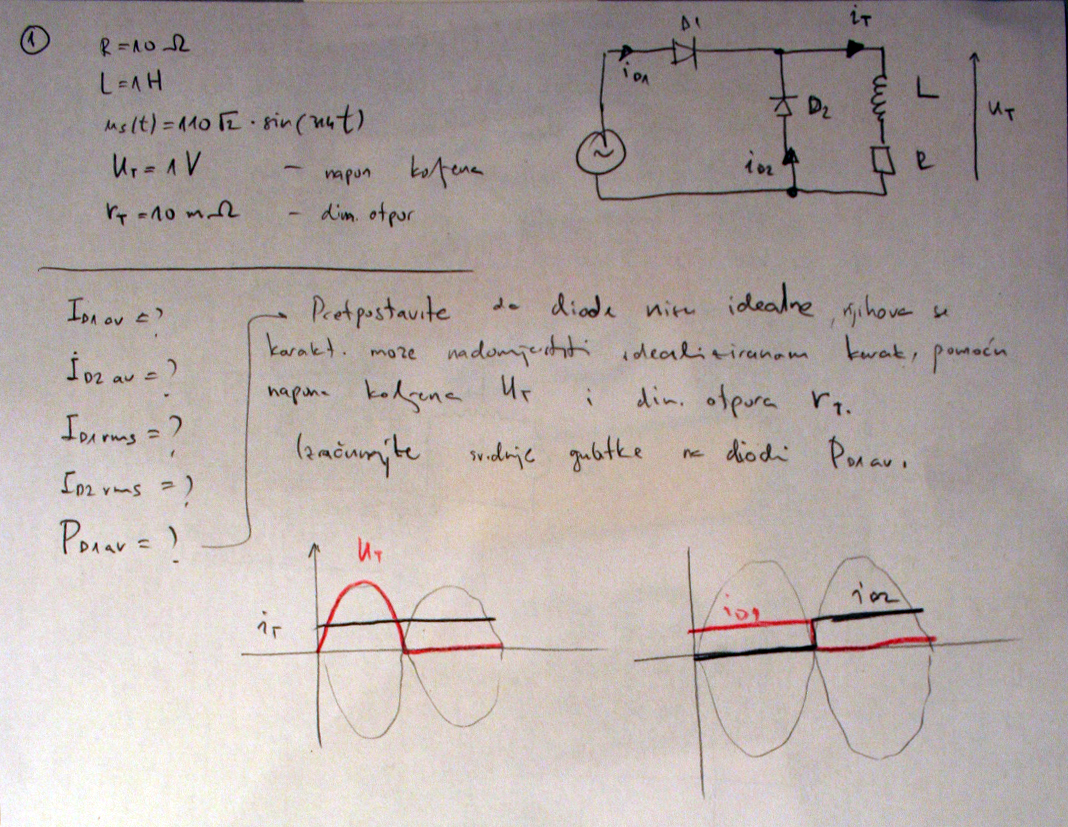 1
R=10 Ω
L=1H
us(t)=110√2 · sin(314t)
UT = 1V - napon koljena
rT =10 mΩ - din. otpor
D1
iD1
iT
D2
iD2
L
R
uT
ID1 av = ?
ID2 av = ?
ID1 rms = ?
ID2 rms = ?
PD1av = ?
Pretpostavite da diode nisu idealne, njihova se
karakt. može nadomjestiti idealiziranom karak. pomoću
napona koljena UT i din. otpora rT.
Izračunajte srednje gubitke na diodi PD1av.
uT
iT
iD1
iD2